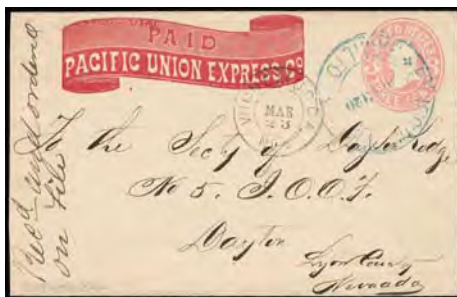 PAID
PACIFIC UNION EXPRESS Co
MAR
23
To the Secty of Dayton Lodge
No 5. I.O.O.F.
Dayton
Lyon County
Nevada
Recd and ordered
on file